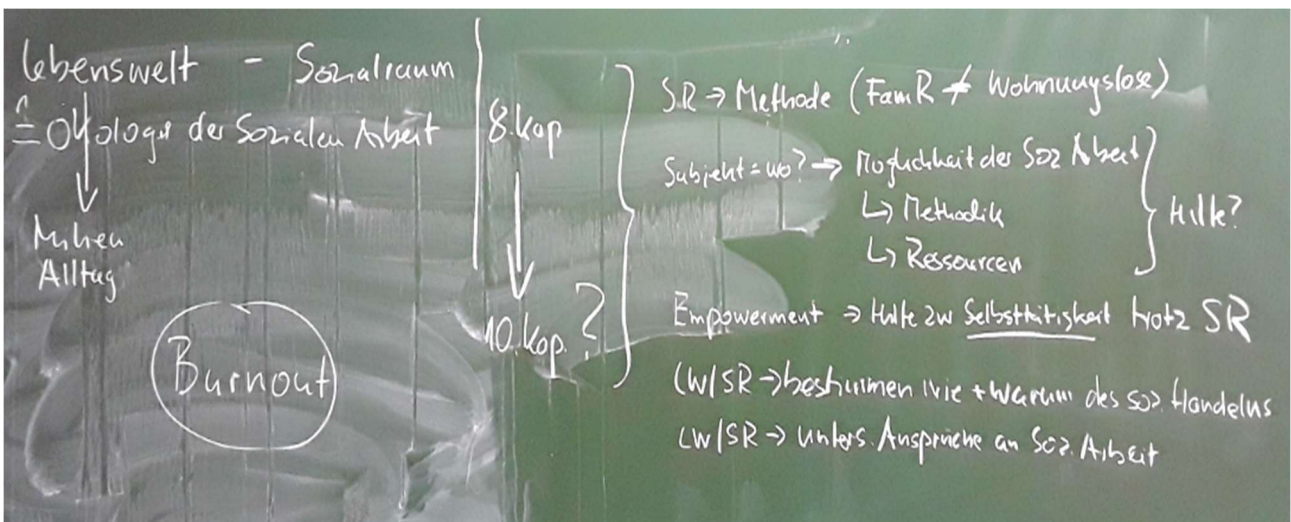 Lebenswelt - Sozialraum
≙ Ökologie der Sozialen Arbeit
↓
Milieu
Alltag
Burnout
8. Kap
↓
10. Kap. ?
SR → Methode (FamR ≠ Wohnungslose)
Subjekt = wo? → Möglichkeit der Soz Arbeit
↳ Methodik
↳ Ressourcen
Hilfe?
Empowerment → Hilfe zur Selbsttätigkeit trotz SR
LW/SR → bestimmen Wie + Warum des soz. Handelns
LW/SR → unters. Ansprüche an Soz. Arbeit